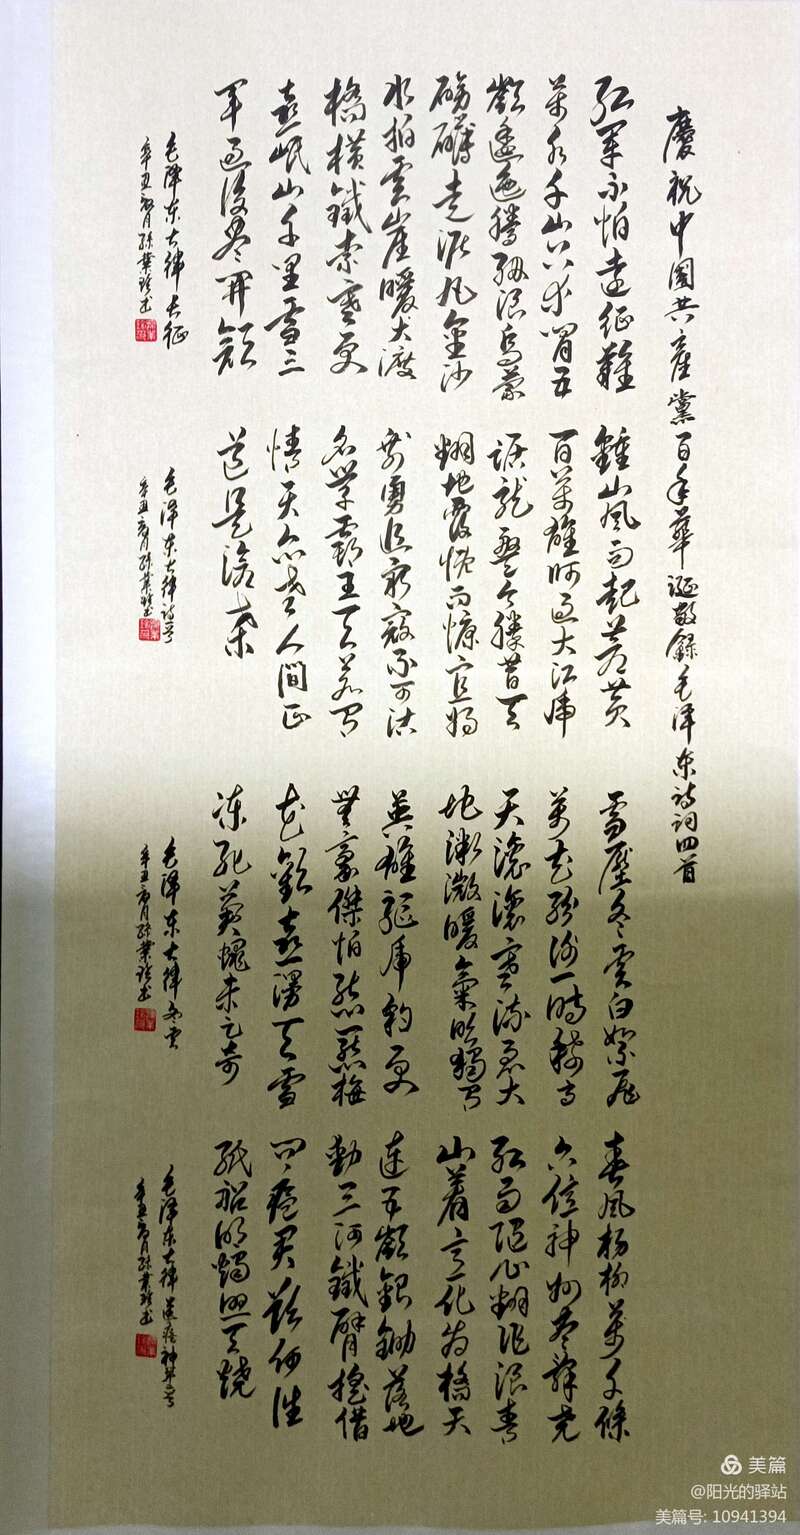 慶祝中國共產黨百年華誕敬錄毛澤東詩詞四首
紅軍不怕遠征難
萬水千山只等閒五
嶺逶迤騰細浪烏蒙
磅礴走泥丸金沙
水拍雲崖暖大渡
橋橫鐵索寒更
喜岷山千里雪三
軍過後盡開顏
毛澤東七律長征
辛丑月孫業書
鍾山風雨起蒼黃
百萬雄師過大江虎
踞龍盤今勝昔天
翻地覆慨而慷宜將
剩勇追窮寇不可沽
名學霸王天若有
情天亦老人間正
道是滄桑
毛澤東七律詩
辛丑月孫業書
雪壓冬雲白絮飛
萬花紛謝一時稀高
天滾滾寒流急大
地微微暖氣吹獨有
英雄驅虎豹更
無豪傑怕熊羆梅
花歡喜漫天雪
凍死蒼蠅未足奇
毛澤東七律冬雲
辛丑月孫業書
春風楊柳萬千條
六億神州盡舜堯
紅雨隨心翻作浪青
山着意化為橋天
連五嶺銀鋤落地
動三河鐵臂搖借
問瘟君欲何往
紙船明燭照天燒
毛澤東七律送瘟神
辛丑月孫業書
美篇
@阳光的驿站
美篇号: 10941394